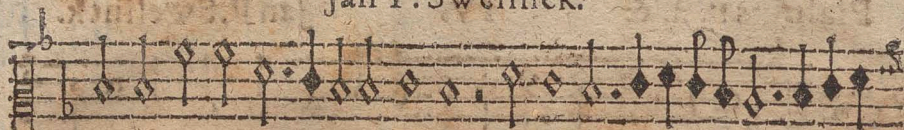 Jan P. Swelinck.